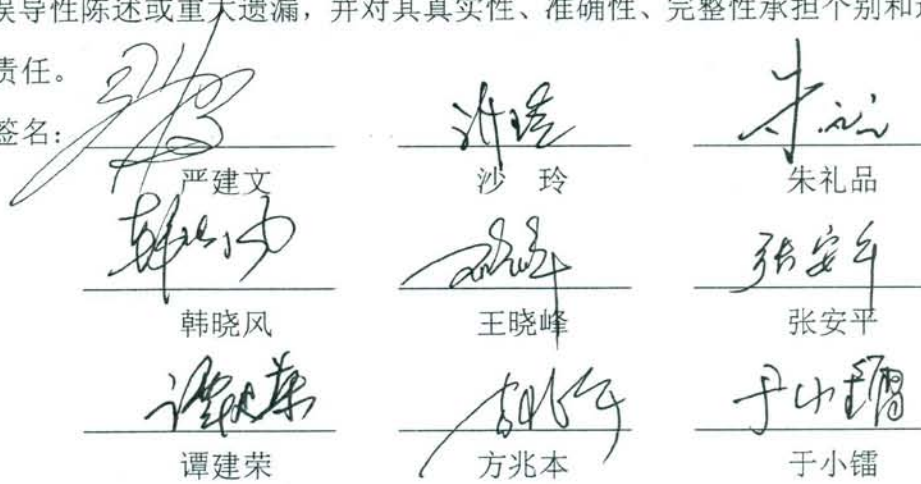 误导性陈述或重大遗漏，并对其真实性、准确性、完整性承担个别和
责任。
签名：
严建文 沙 玲 朱礼品
韩晓风 王晓峰 张安平
谭建荣 方兆本 于小镭